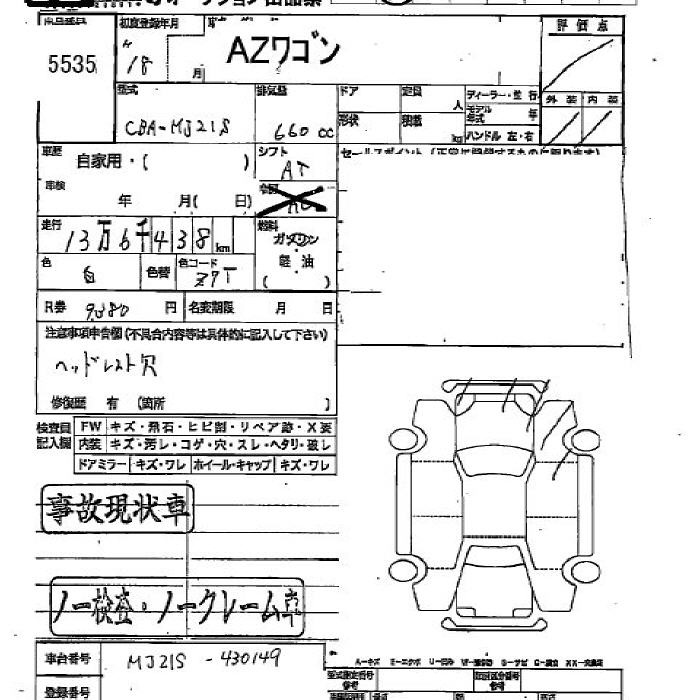 出品番号 初度登録年月 評価点
5535 18 月 AZワゴン
型式 排気量 ドア 定員 人 ディーラー・並行 外装 内装
CBA-MJ21S 660cc 形状 積載 kg モデル年式 年
ハンドル 左・右
車歴 自家用・( ) シフト AT
車検 年 月( 日)
走行 13万6千438km 燃料 ガソリン
軽油
( )
色 白 色替 色コード Z7T
R券 9,880円 名変期限 月 日
注意事項申告欄(不具合内容等は具体的に記入して下さい)
ヘッドレスト穴
修復歴 有 (箇所 )
検査員記入欄 FW キズ・飛石・ヒビ割・リペア跡・X要
内装 キズ・汚レ・コゲ・穴・スレ・ヘタリ・破レ
ドアミラー キズ・ワレ ホイール・キャップ キズ・ワレ
事故現状車
ノー検査・ノークレーム車
車台番号 MJ21S -430149
登録番号